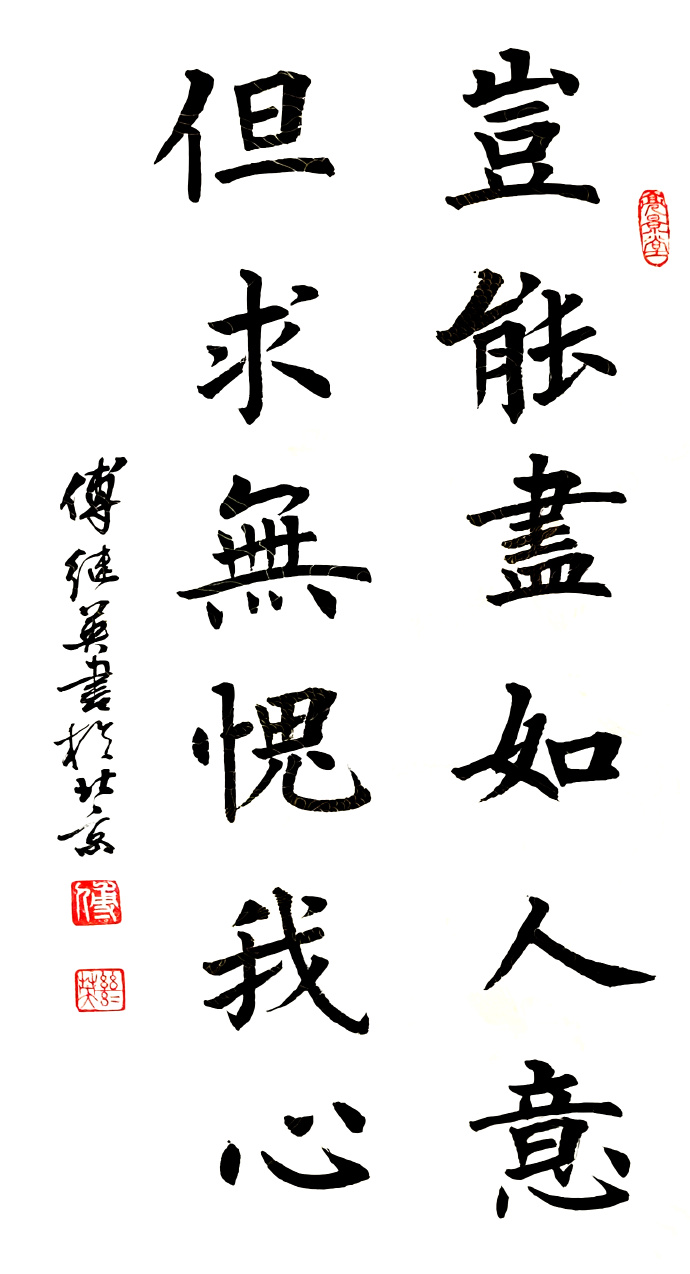 豈能盡如人意
但求無愧我心
傅继英書於北京